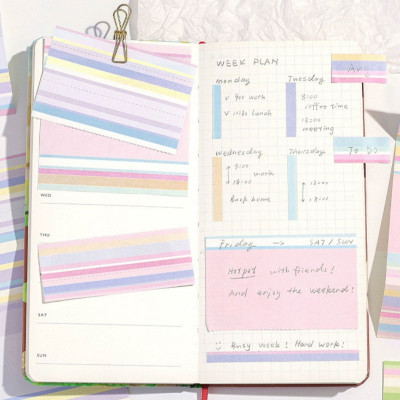 WED
THU
SAT
SUN
WEEK PLAN
monday
v go work
v lunch
Tuesday
8:00
coffee time
meeting
wednesday
9:00
work
18:00
Back home
Thursday
18:00
To Do
Friday → SAT / SUN
Hotpot with friends!
And enjoy the weekends!
Busy week! Hard work!